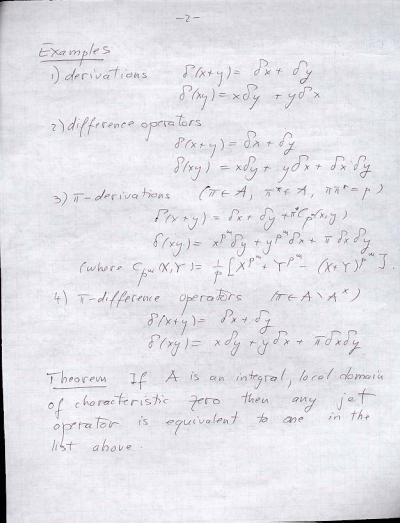 -2-
Examples
1) derivations δ(x+y) = δx + δy
δ(xy) = xδy + yδx
2) difference operators
δ(x+y) = δx + δy
δ(xy) = xδy + yδx + δxδy
3) π-derivations (π∈A, π*∈A, ππ* = p)
δ(x+y) = δx + δy + π*C_{p^m}(x,y)
δ(xy) = x^{p^m}δy + y^{p^m}δx + πδxδy
(where C_{p^m}(X,Y) = 1/p [X^{p^m} + Y^{p^m} - (X+Y)^{p^m}].
4) π-difference operators (π∈A\A^x)
δ(x+y) = δx + δy
δ(xy) = xδy + yδx + πδxδy
Theorem If A is an integral, local domain
of characteristic zero then any jet
operator is equivalent to one in the
list above.